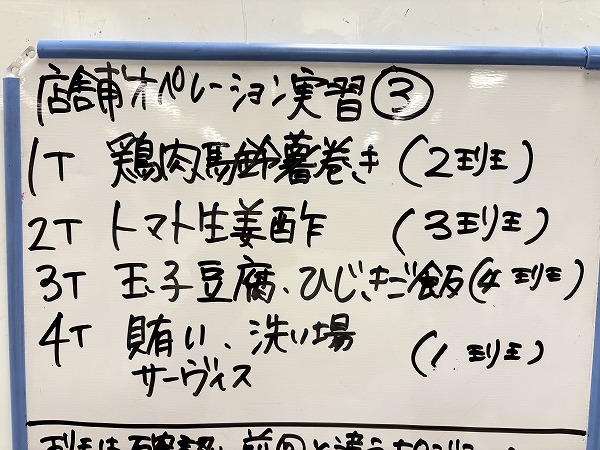 店舗オペレーション実習③
1T 鶏肉馬鈴薯巻き (2班)
2T トマト生姜酢 (3班)
3T 玉子豆腐、ひじきご飯(4班)
4T 賄い、洗い場 (1班)
サーヴィス